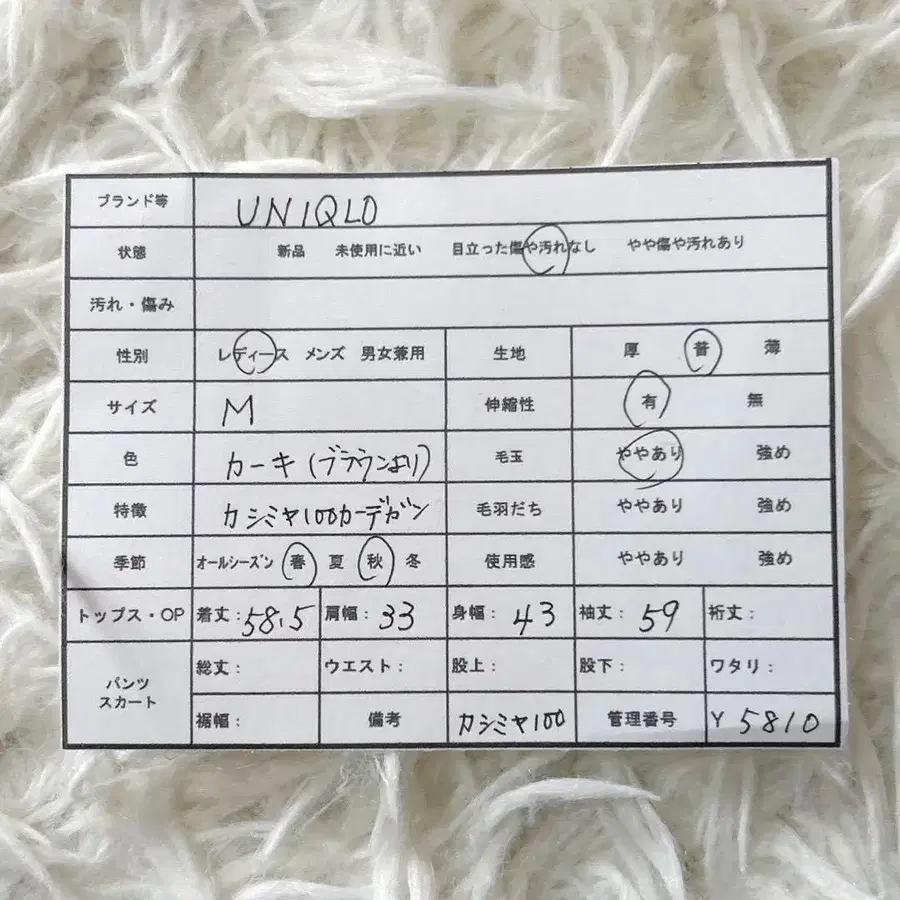 ブランド等 UNIQLO
状態 新品 未使用に近い 目立った傷や汚れなし やや傷や汚れあり
汚れ・傷み
性別 レディース メンズ 男女兼用 生地 厚 普 薄
サイズ M 伸縮性 有 無
色 カーキ(ブラウンより) 毛玉 ややあり 強め
特徴 カシミヤ100カーデガン 毛羽だち ややあり 強め
季節 オールシーズン 春 夏 秋 冬 使用感 ややあり 強め
トップス・OP 着丈:58.5 肩幅:33 身幅:43 袖丈:59 裄丈:
パンツ スカート 総丈: ウエスト: 股上: 股下: ワタリ:
裾幅: 備考 カシミヤ100 管理番号 Y 5810